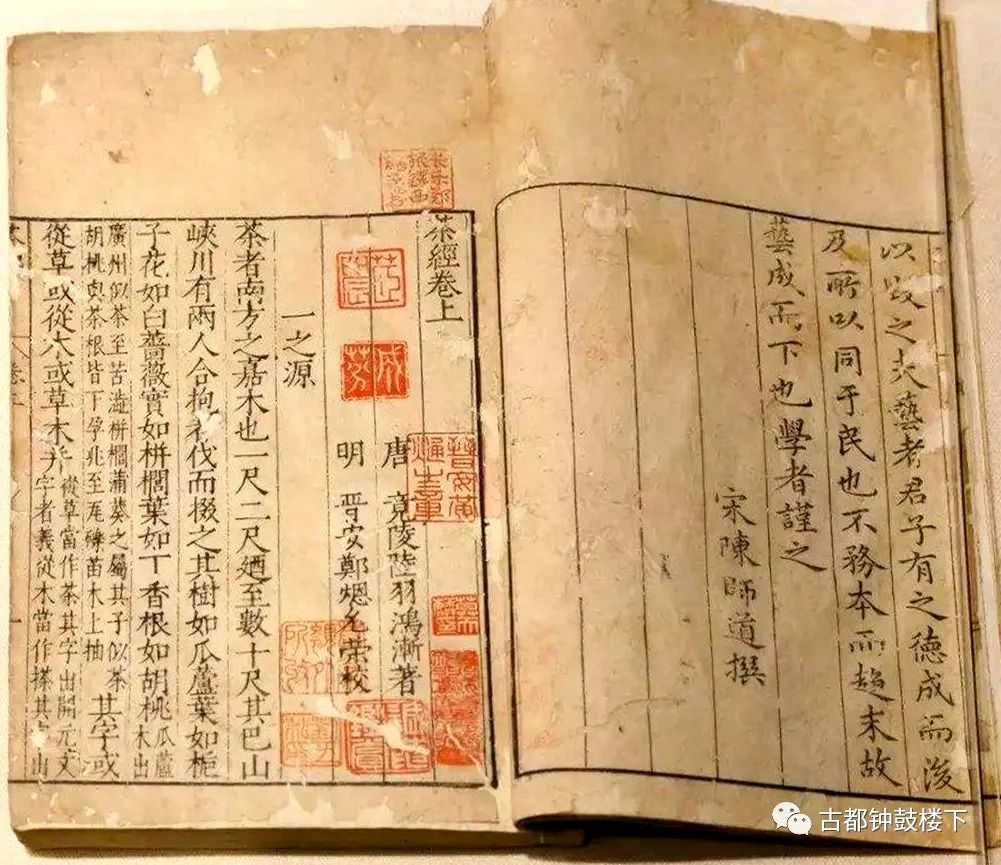 以敦之夫藝者君子有之德成而後
及所以同于民也不務本而趨末故
藝成而下也學者謹之
宋陳師道撰
茶經卷上
唐竟陵陸羽鴻漸著
明晋安鄭煾允榮校
一之源
茶者南方之嘉木也一尺二尺廼至數十尺其巴山
峽川有兩人合抱者伐而掇之其樹如瓜蘆葉如梔
子花如白薔薇實如栟櫚葉如丁香根如胡桃瓜蘆木出
廣州似茶至苦澁栟櫚蒲葵之屬其子似茶
胡桃與茶根皆下孕兆至瓦礫苗木上抽
其字或
從草或從木或草木并從草當作茶其字出開元文
字者義從木當作搽其字出
古都钟鼓楼下